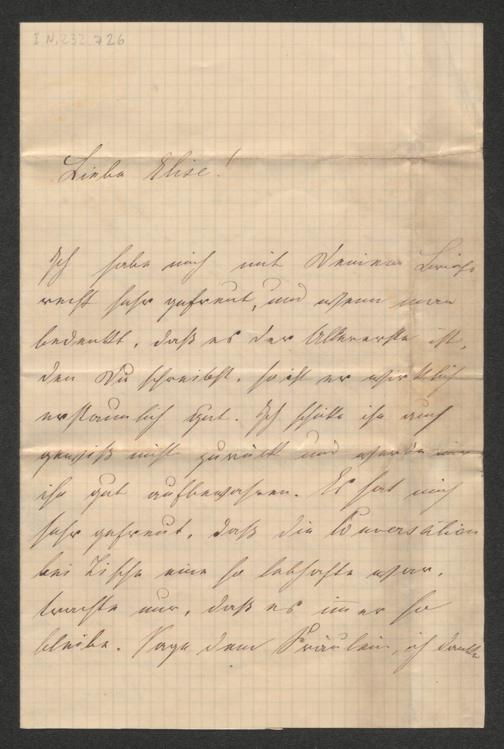 I.N. 232.726
Liebe Elise!
Ich habe mich mit Deinem Briefe
recht sehr gefreut, und wenn man
bedenkt, daß es der Allererste ist,
den Du schreibst, so ist er wirklich
erstaunlich gut. Ich schicke ihn auch
gewiß nicht zurück und werde mir
ihn gut aufbewahren. Es hat mich
sehr gefreut, daß die Conversation
bei Tische eine so lebhafte war,
trachte nur, daß es immer so
bleibe. Sage dem Fräulein, ich danke